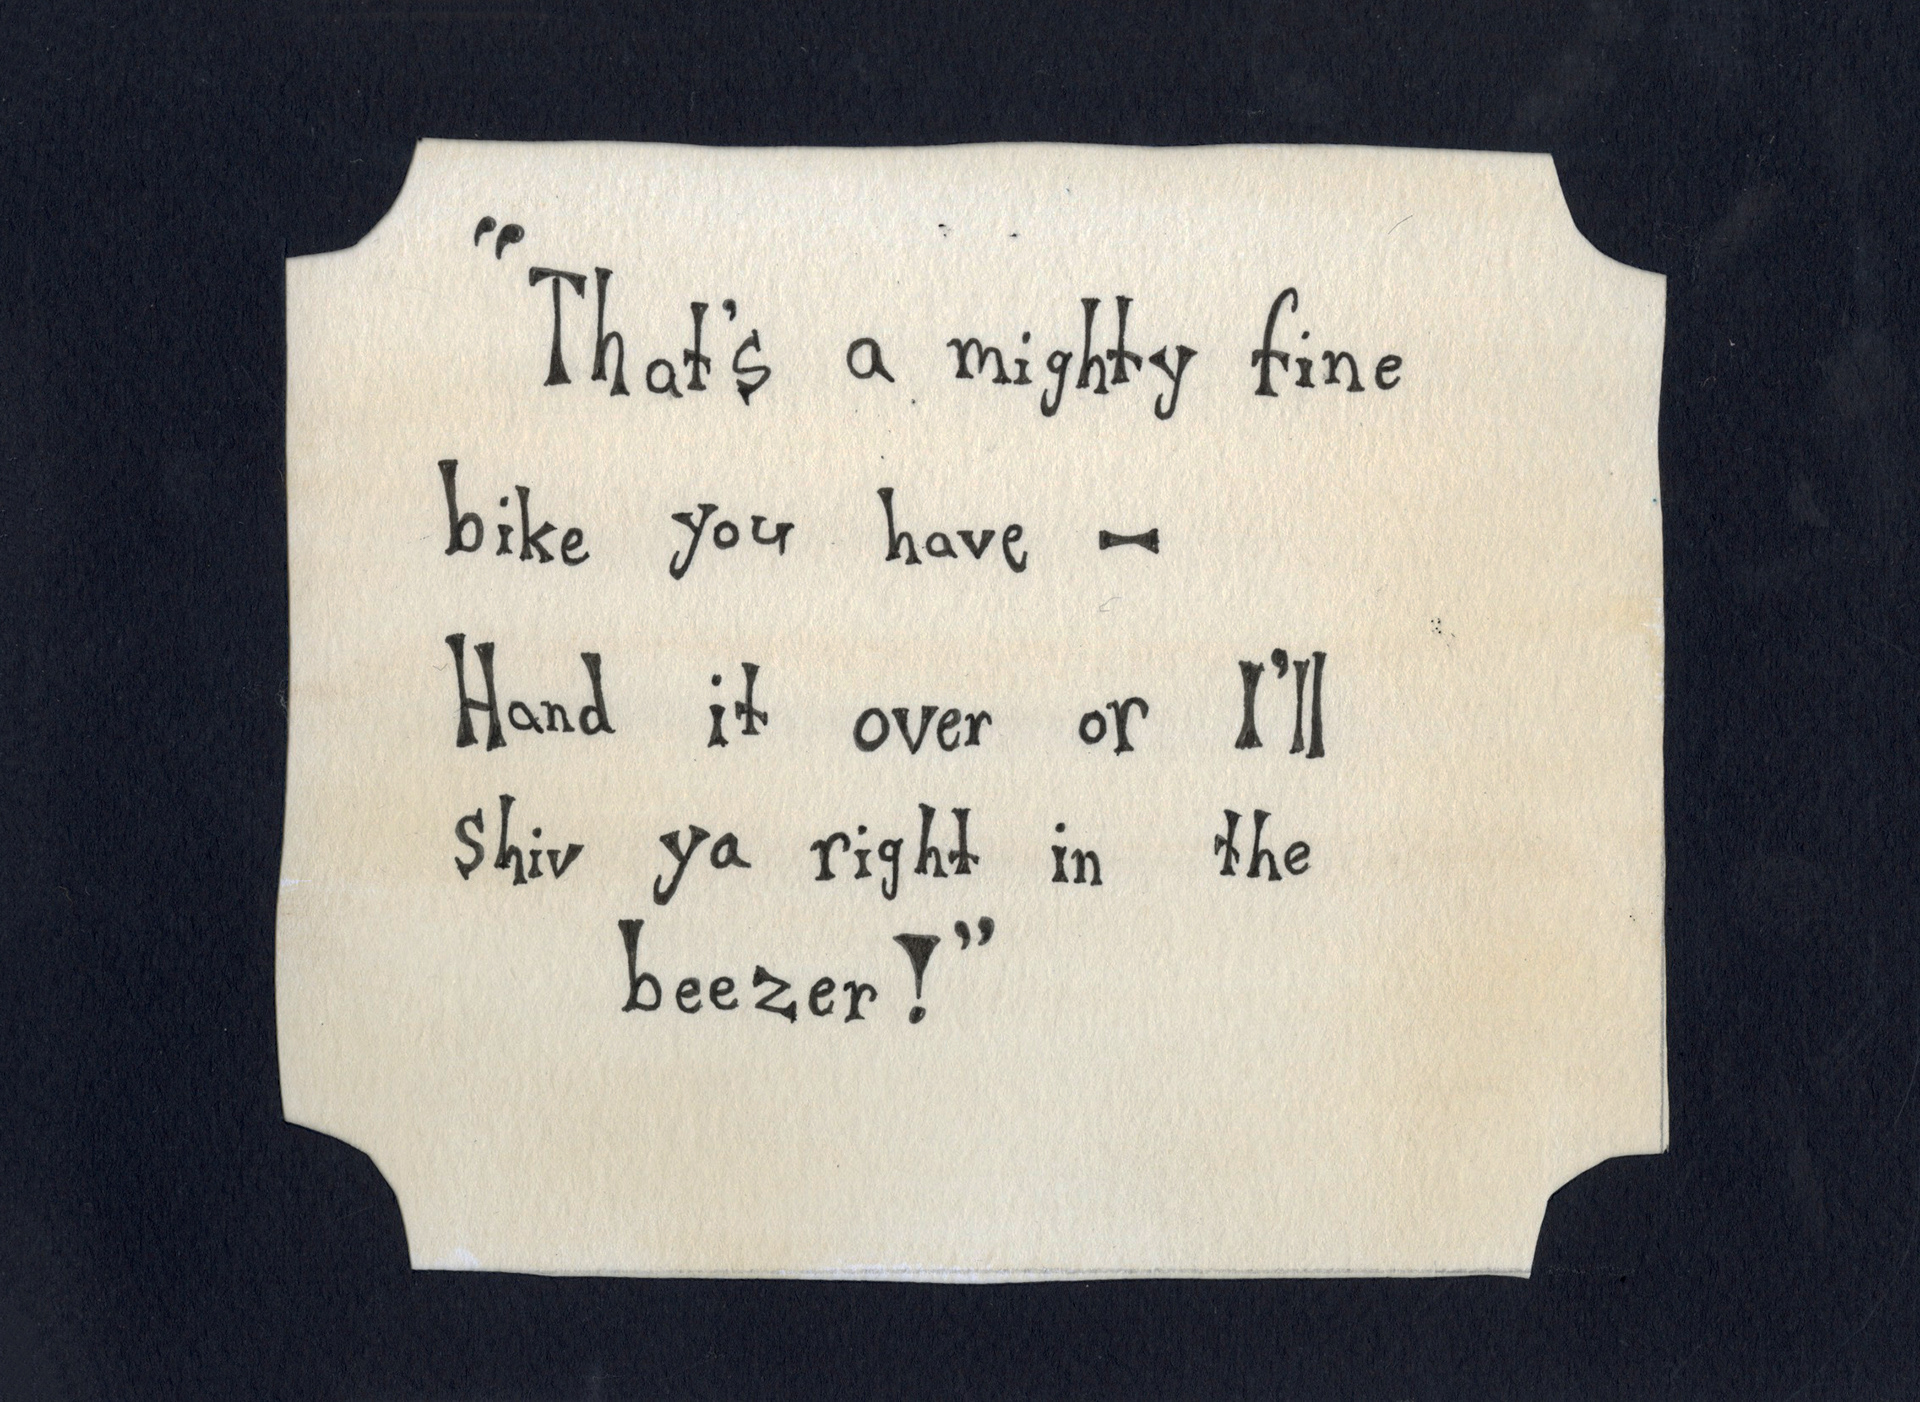 “That’s a mighty fine
bike you have –
Hand it over or I’ll
shiv ya right in the
beezer!”